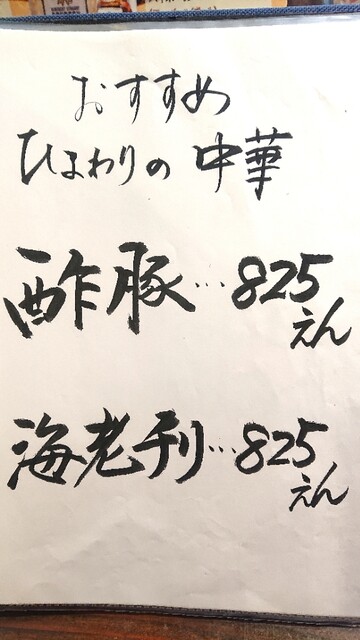 おすすめ
ひまわりの中華
酢豚…825
えん
海老チリ…825
えん